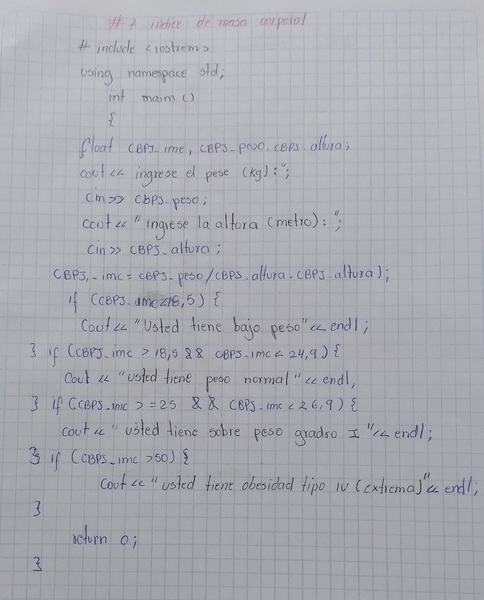 # 7 indice de masa corporal
# include <iostream>
using namespace std;
int maim ()
{
float CBPS_ime, CBPS_peso, CBPS_altura;
cout << ingrese el peso (kg) :";
cin >> CBPS_peso;
cout << "ingrese la altura (metro) : ";
cin >> CBPS_altura;
CBPS_imc = CBPS_peso / CBPS_altura - CBPS_altura);
if (CBPS_imc <18,5) {
Cout << "Usted tiene bajo peso" << endl;
} if (CBPS_imc > 18,5 && CBPS_imc < 24,9) {
Cout << "usted tiene peso normal" << endl,
} if (CBPS_imc > =25 && CBPS_imc < 26,9) {
cout << " usted tiene sobre peso gradro I " << endl;
} if (CBPS_imc >50) {
Cout << "usted tiene obesidad tipo IV (extrema)" << endl;
}
return 0;
}